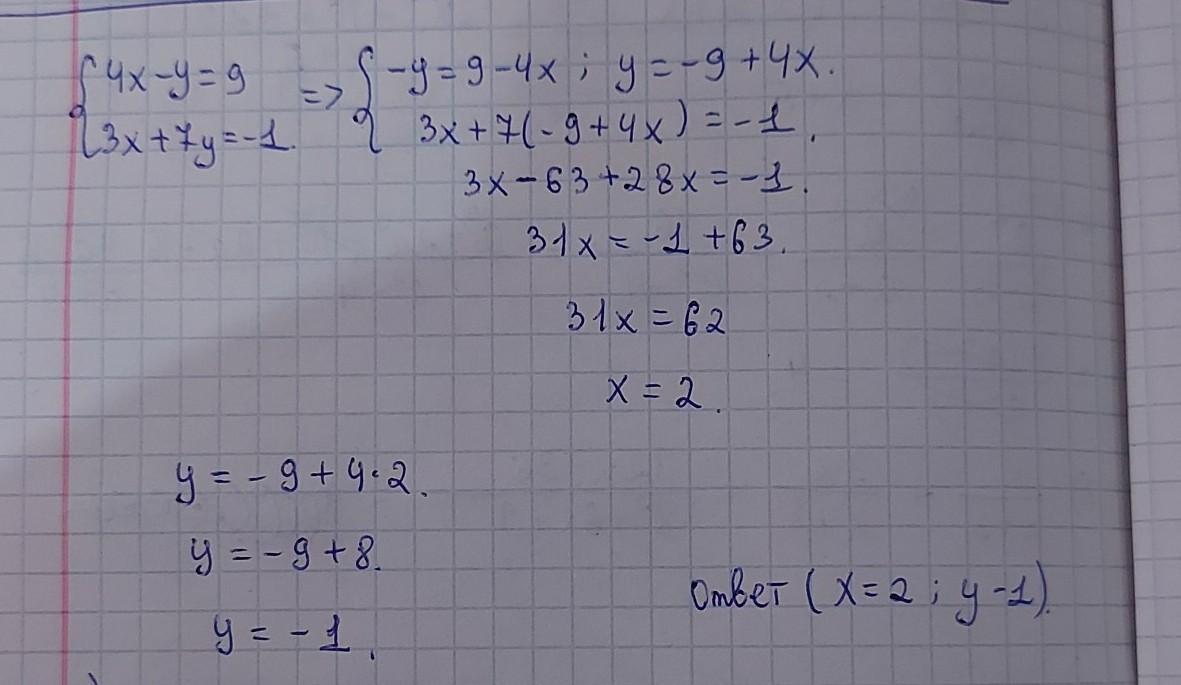 {4x-y=9 => {-y=9-4x; y=-9+4x.
3x+7y=-1. 3x+7(-9+4x)=-1.
3x-63+28x=-1.
31x=-1+63.
31x=62
x=2.
y=-9+4·2.
y=-9+8.
y=-1.
Ответ (x=2; y-1).